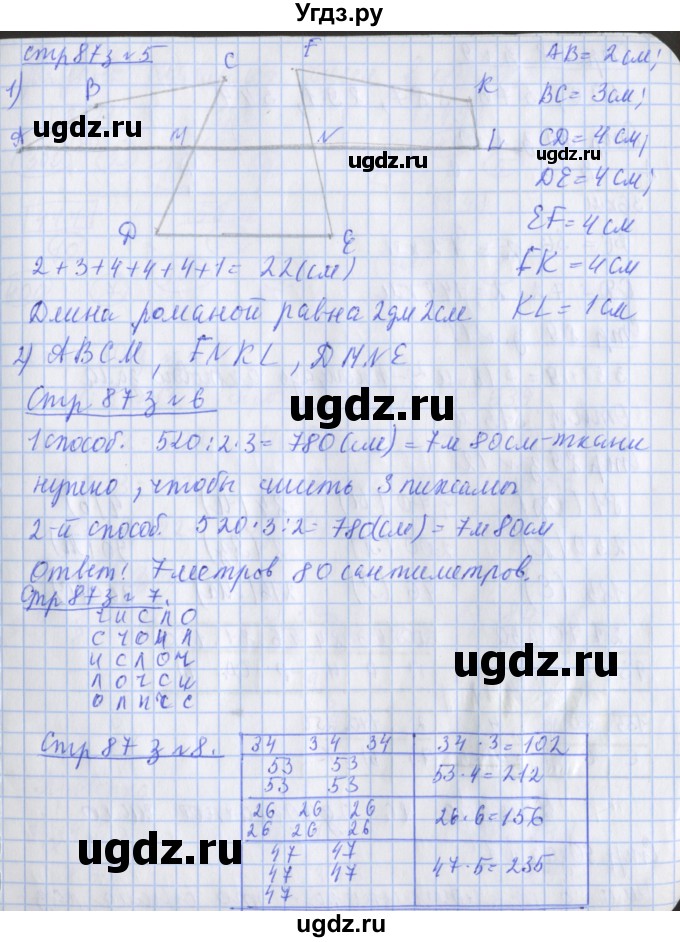 Угдз.ру
стр 87 з №5
C F AB = 2 см;
1) B K BC = 3 см;
A M N L CD = 4 см;
DE = 4 см;
D E EF = 4 см
2+3+4+4+4+1= 22(см) FK = 4 см
Длина романой равна 2дм 2см. KL = 1 см
2) ABCM, FNKL, DMNE
Стр 87 з №6
1 способ. 520:2·3= 780(см) = 7м 80см - ткани
нужно, чтобы сшить 3 пижамы
2-й способ. 520·3:2= 780(см) = 7м 80см
Ответ: 7 метров 80 сантиметров.
Стр 87 з № 7.
ЧИСЛО
СЧОИЛ
ИСЛОЧ
ЛОЧСИ
ОЛИЧС
Стр 87 з №8.
34 34 34 34·3=102
53 53
53 53 53·4=212
26 26 26
26 26 26 26·6=156
47 47
47 47 47·5=235
47
ugdz.ru
ugdz.ru
ugdz.ru
ugdz.ru
ugdz.ru
ugdz.ru
ugdz.ru
ugdz.ru
ugdz.ru